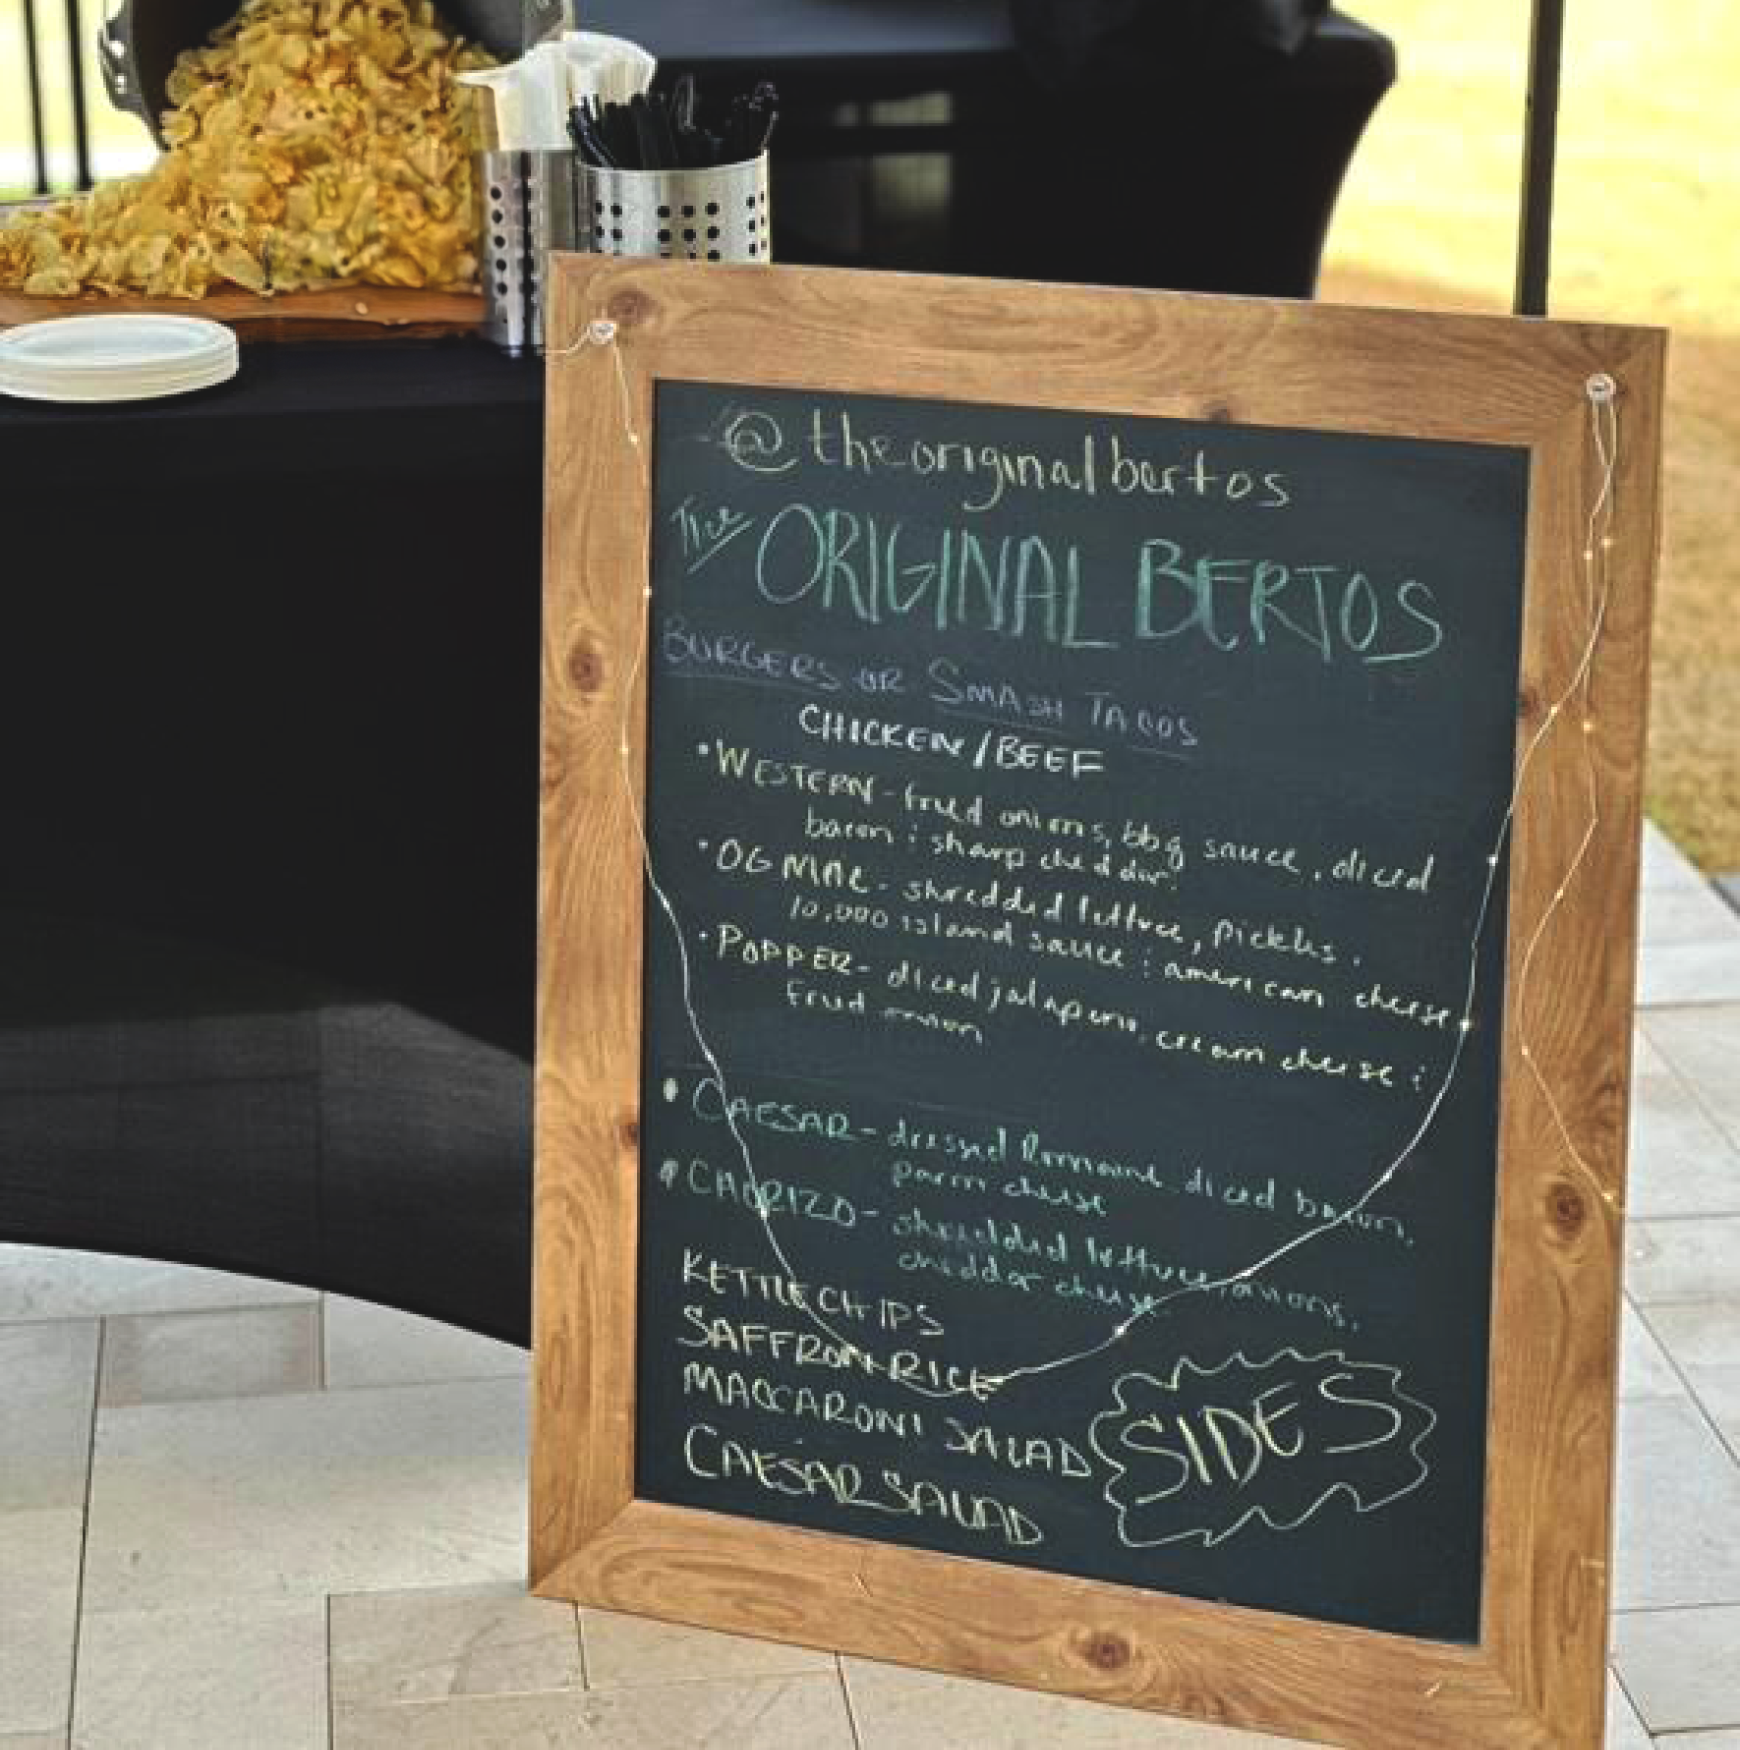 @theoriginalbertos
The ORIGINAL BERTOS
BURGERS OR SMASH TACOS
CHICKEN/BEEF
• WESTERN - fried onions, bbq sauce, diced
bacon & sharp cheddar.
• OG MAC - shredded lettuce, pickles,
10,000 island sauce & american cheese
• POPPER - diced jalapeno, cream cheese &
fried onion
• CAESAR - dressed Romaine, diced bacon,
parm cheese
• CHORIZO - shredded lettuce, onions,
cheddar cheese
KETTLE CHIPS
SAFFRON RICE
MACCARONI SALAD
CAESAR SALAD
SIDES